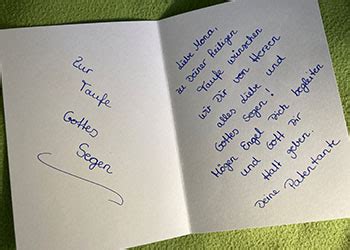 Zur
Taufe
Gottes
Segen
Liebe Mona,
zu Deiner Heiligen
Taufe wünschen
wir Dir von Herzen
alles Liebe und
Gottes Segen!
Mögen Engel Dich begleiten
und Gott Dir
Halt geben.
Deine Patentante